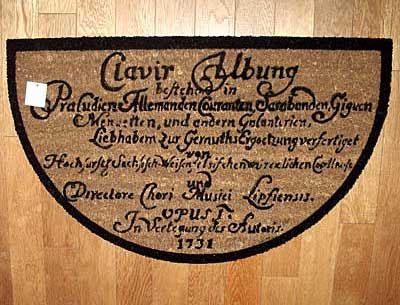 Clavir Ubung
bestehend in
Præludien, Allemanden, Couranten, Sarabanden, Giguen
Menuetten, und andern Galanterien,
Liebhabern zur Gemuths Ergoetzung verfertiget
von
Hochfürstl Sächsisch-Weisen
und
Directore Chori Musici Lipsiensis.
OPUS I.
In Verlegung des Autoris.
1731